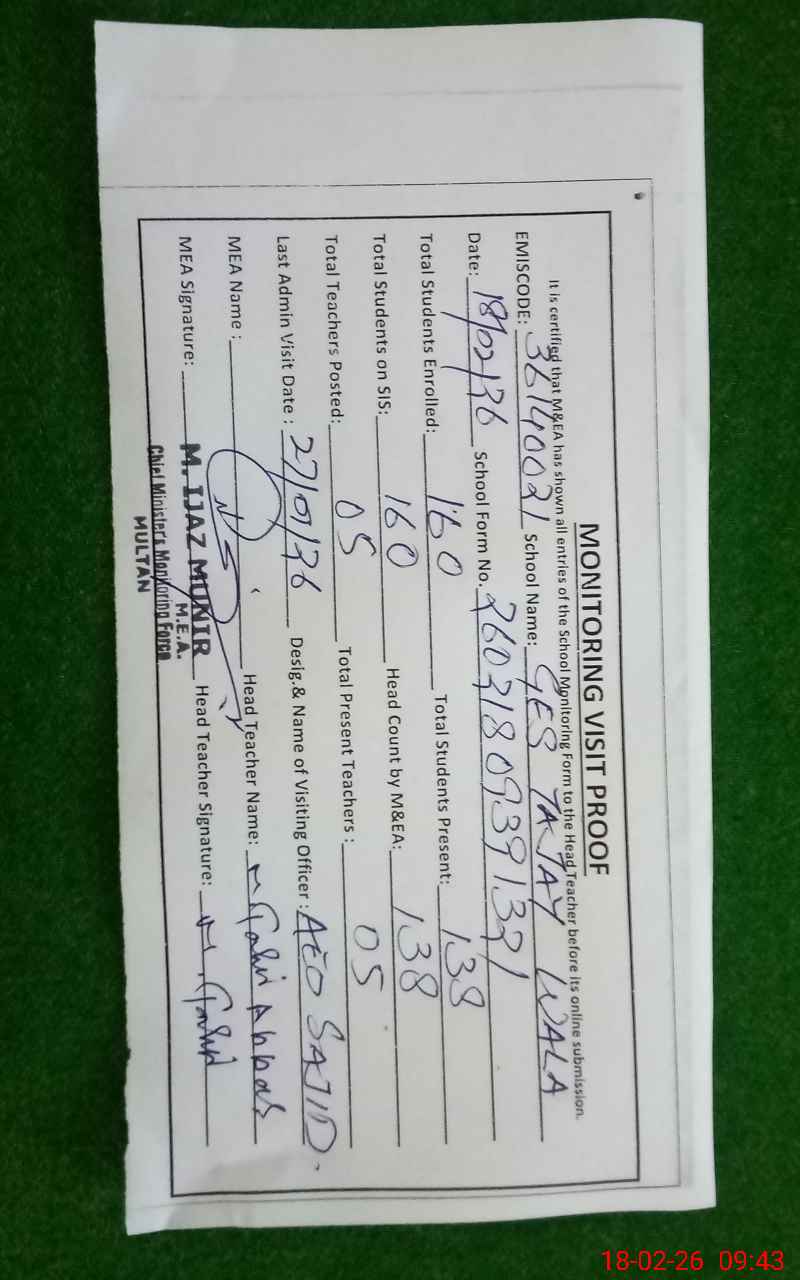 MONITORING VISIT PROOF
It is certified that M&EA has shown all entries of the School Monitoring Form to the Head Teacher before its online submission.
EMISCODE: 36140021 School Name: GES TATAY WALA
Date: 18/02/26 School Form No. 26021809391321
Total Students Enrolled: 160 Total Students Present: 138
Total Students on SIS: 160 Head Count by M&EA: 138
Total Teachers Posted: 05 Total Present Teachers : 05
Last Admin Visit Date : 27/01/26 Desig.& Name of Visiting Officer : AEO SAJID.
MEA Name : Head Teacher Name: M Tahir Abbas
MEA Signature: M. IJAZ MUNIR Head Teacher Signature: M. Tahir
M.E.A.
Chief Minister's Monitoring Force
MULTAN
18-02-26 09:43